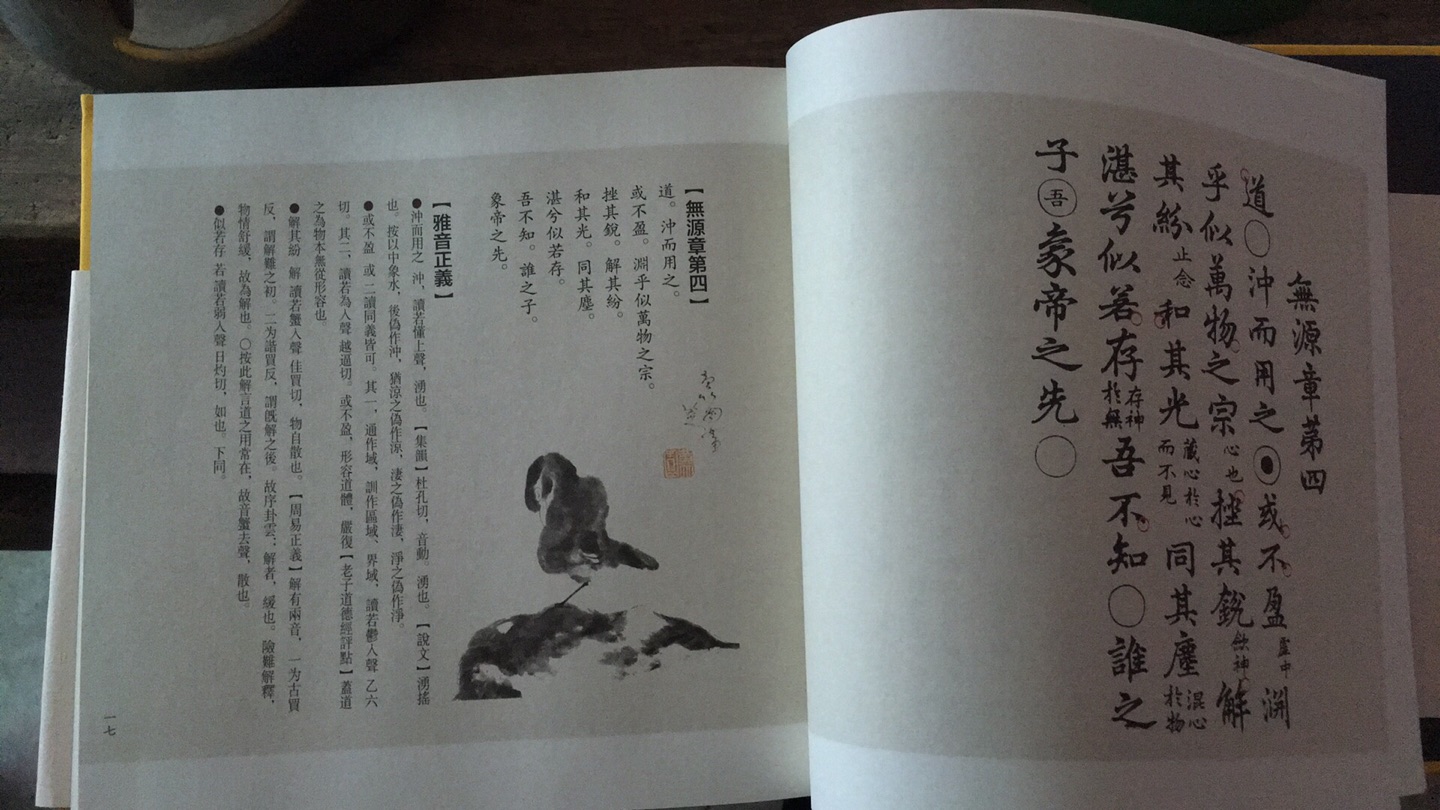 無源章第四
道○沖而用之◉或不盈虛中淵
乎似萬物之宗心也挫其銳斂神解
其紛止念和其光藏心於心而不見同其塵混心於物
湛兮似若存存神於無吾不知○誰之
子吾象帝之先○
【無源章第四】
道。沖而用之。
或不盈。淵乎似萬物之宗。
挫其銳。解其紛。
和其光。同其塵。
湛兮似若存。
吾不知。誰之子。
象帝之先。
【雅音正義】
●沖而用之 沖，讀若懂上聲，湧也。【集韻】杜孔切，音動。湧也。【說文】湧搖
也。按以中象水，後偽作沖，猶涼之偽作凉，淒之偽作凄，淨之偽作净。
●或不盈 或 二讀同義皆可。其一，通作域，訓作區域、界域，讀若鬱入聲 乙六
切。其二，讀若為入聲 越逼切。或不盈，形容道體，嚴復【老子道德經評點】蓋道
之為物本無從形容也。
●解其紛 解 讀若蟹入聲 佳買切，物自散也。【周易正義】解有兩音，一为古買
反，謂解難之初。二为諧買反，謂既解之後。故序卦雲：解者，緩也。險難解釋，
物情舒緩，故為解也。○按此解言道之用常在，故音蟹去聲，散也。
●似若存 若 讀若弱入聲 日灼切，如也。下同。
一七